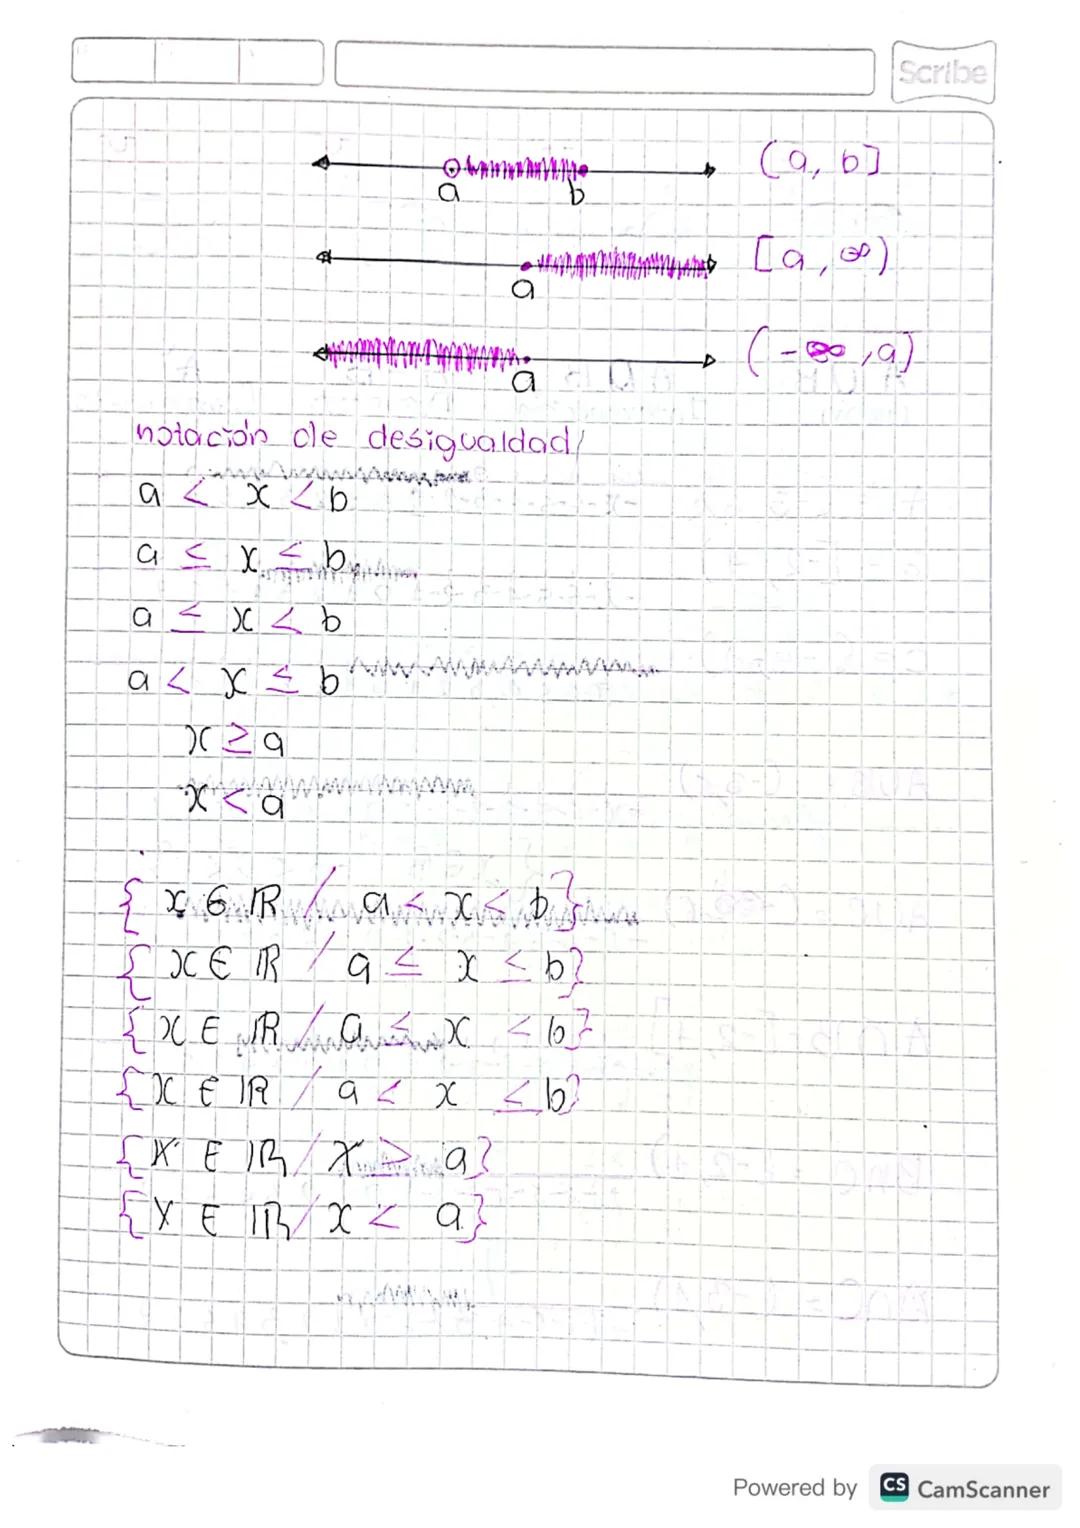 Scribe
(a, b]
a b
[a, ∞)
a
(-∞, a)
a
notación de desigualdad/
a < x < b
a ≤ x ≤ b
a ≤ x < b
a < x ≤ b
x ≥ a
x < a
{ x ∈ IR / a < x ≤ b}
{ x ∈ IR / a ≤ x ≤ b}
{ x ∈ IR / a ≤ x < b}
{ x ∈ IR / a < x ≤ b}
{ x ∈ IR / x ≥ a}
{ x ∈ IR / x < a}
Powered by CS CamScanner